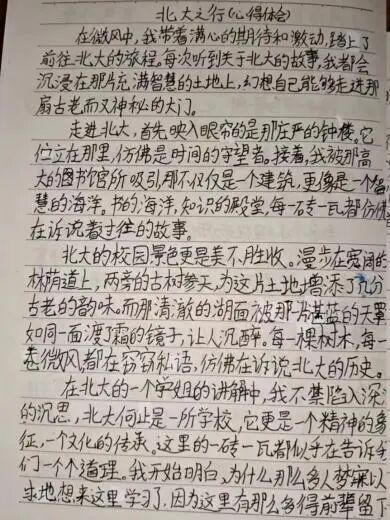 北大之行(心得体会)
在微风中,我带着满心的期待和激动,踏上了
前往北大的旅程。每次听到关于北大的故事,我都会
沉浸在那片充满智慧的土地上,幻想自己能够走进那
扇古老而又神秘的大门。
走进北大,首先映入眼帘的是那庄严的钟楼。它
伫立在那里,仿佛是时间的守望者。接着,我被那高
大的图书馆所吸引,那不仅仅是一个建筑,更像是一个智
慧的海洋。书的海洋,知识的殿堂,每一砖一瓦都仿佛
在诉说着过往的故事。
北大的校园景色更是美不胜收。漫步在宽阔的
林荫道上,两旁的古树参天,为这片土地增添了几分
古老的韵味。而那清澈的湖面被那片湛蓝的天
如同一面渡了霜的镜子,让人沉醉。每一棵树木,每一
卷微风,都在窃窃私语,仿佛在诉说北大的历史。
在北大的一个学姐的讲解中,我不禁陷入深深
的沉思,北大何止是一所学校,它更是一个精神的象
征,一个文化的传承。这里的一砖一瓦都似乎在告诉
们一个个道理。我开始明白,为什么那么多人梦寐以
求地想来这里学习了,因为这里有那么多得前辈留下